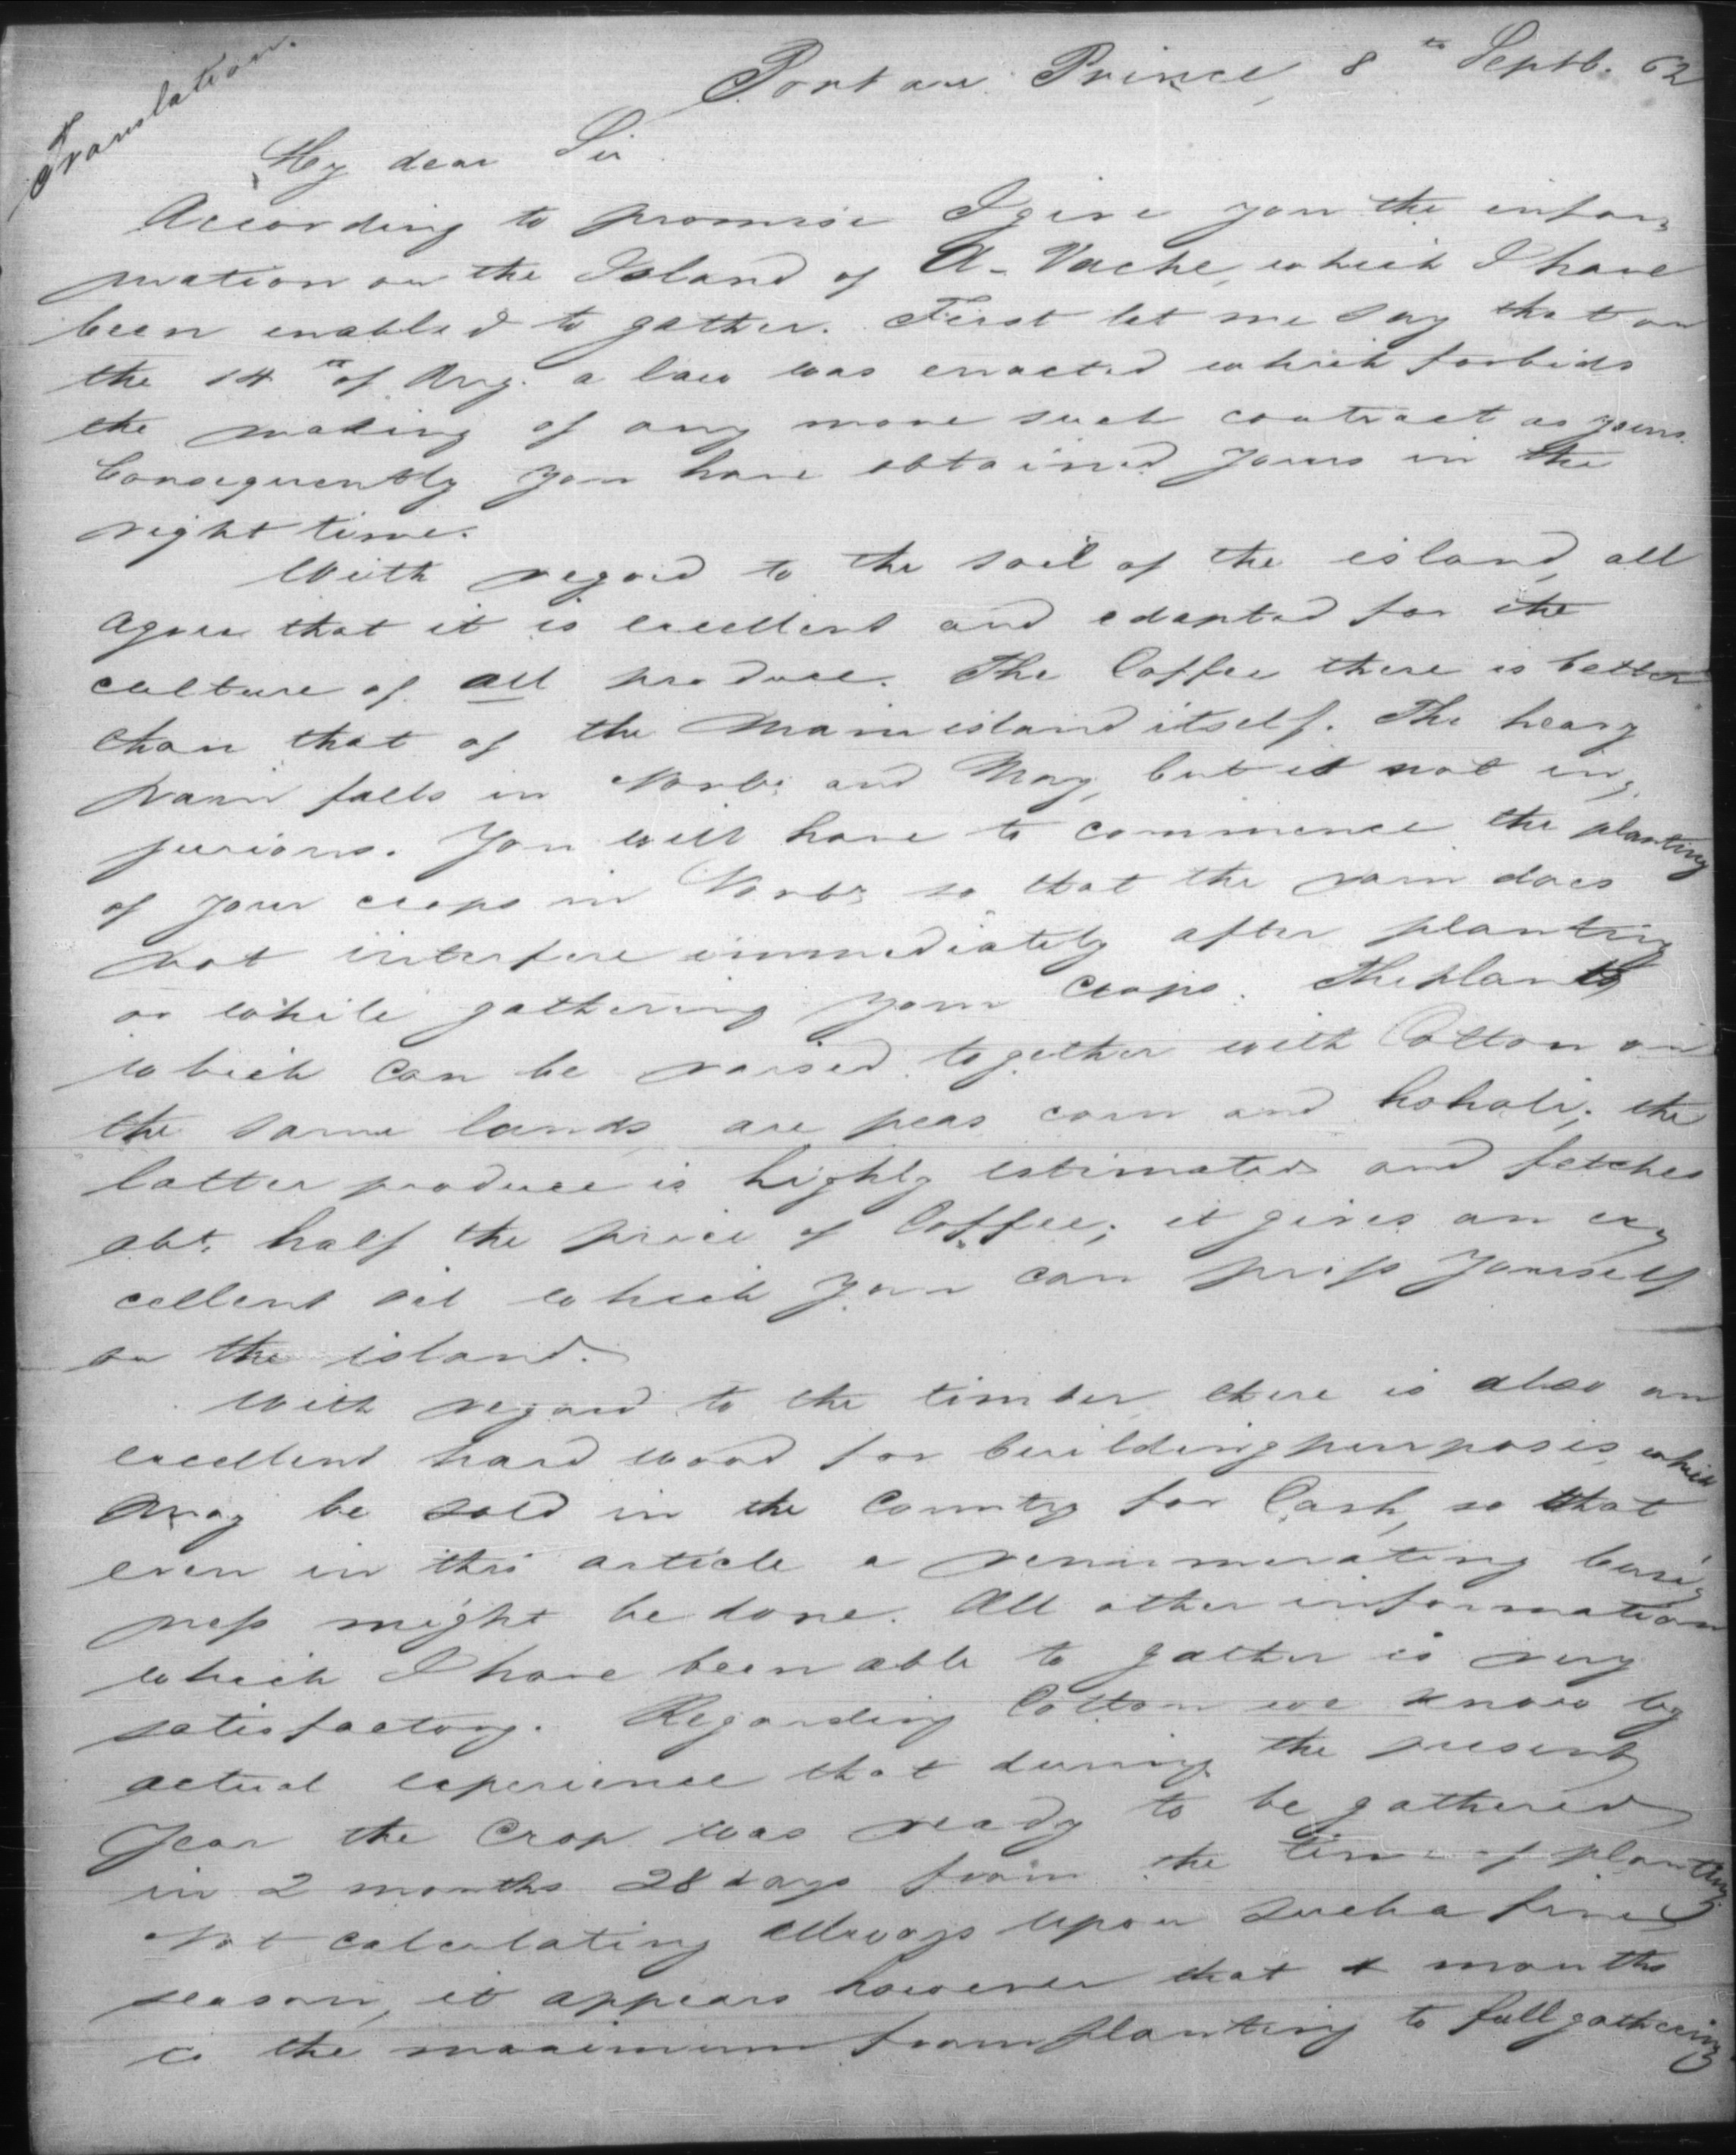 Translation.
Port au Prince, 8th Septb. 62
My dear Sir
According to promise I give you the infor=
mation on the Island of A-Vache, which I have
been enabled to gather. First let me say that on
the 14th of Aug. a law was enacted which forbids
the making of any more such contract as yours.
Consequently you have obtained yours in the
right time.
With regard to the soil of the island, all
agree that it is excellent and adapted for the
culture of all produce. The Coffee there is better
than that of the Main island itself. The heavy
rain falls in Novbr and May, but is not in=
jurious. You will have to commence the planting
of your crops in Novbr so that the rain does
not interfere immediately after planting
or while gathering your Crops. The plants
which can be raised together with Cotton on
the same lands are peas corn and hoholi; the
latter produce is highly estimated and fetches
abt. half the price of Coffee; it gives an ex=
cellent oil which you can press yourself
on the island.
With regard to the timber there is also an
excellent hard wood for building purposes, which
may be sold in the Country for Cash, so that
even in this article a renumerating busi=
ness might be done. All other information
which I have been able to gather is very
satisfactory. Regarding Cotton we know by
actual experience that during the present
year the Crop was ready to be gathered
in 2 months 28 days from the time of planting.
Not calculating allways upon such a fine
season, it appears however that 4 months
is the maximum from planting to full gathering